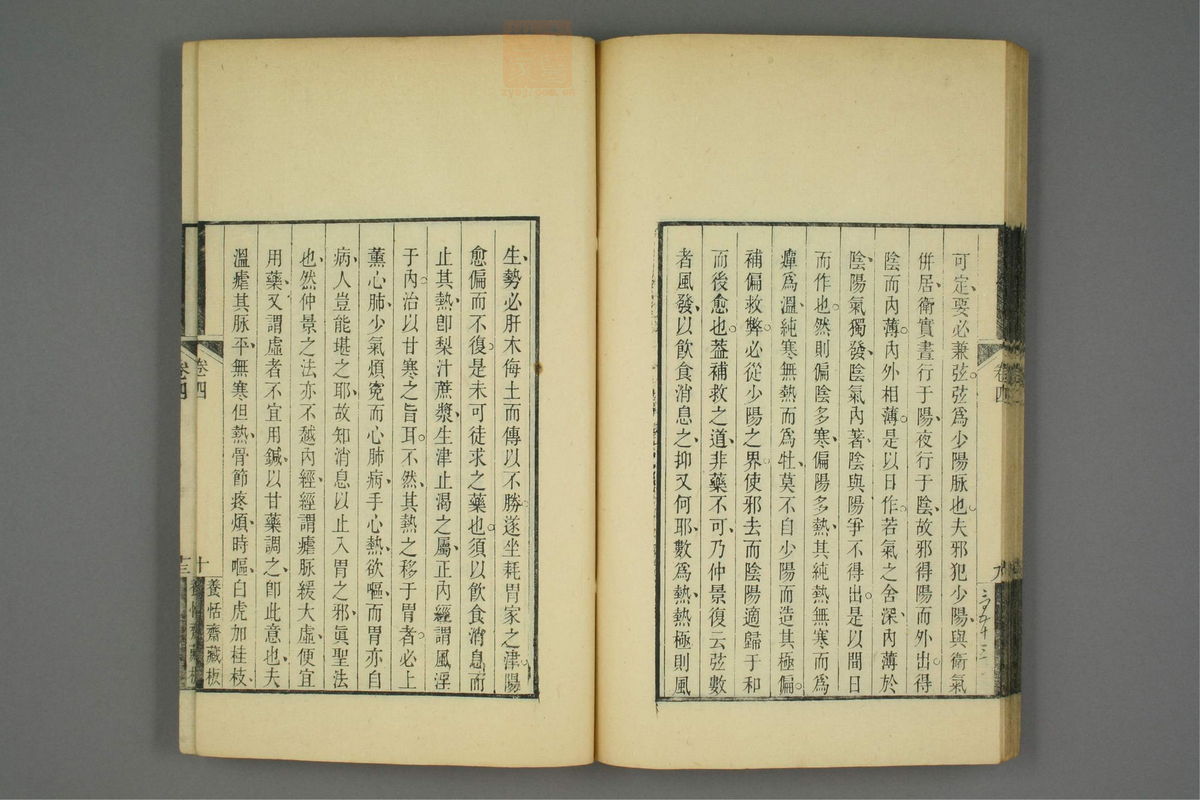 可定要必兼弦弦爲少陽脉也夫邪犯少陽與衛氣
併居衛實晝行于陽夜行于陰故邪得陽而外出得
陰而內薄內外相薄是以日作若氣之舍深內薄於
陰陽氣獨發陰氣內著陰與陽爭不得出是以間日
而作也然則偏陰多寒偏陽多熱其純熱無寒而爲
癉爲溫純寒無熱而爲牡莫不自少陽而造其極偏
補偏救弊必從少陽之界使邪去而陰陽適歸于和
而後愈也葢補救之道非藥不可乃仲景復云弦數
者風發以飲食消息之抑又何耶數爲熱熱極則風
卷四
九
生勢必肝木侮土而傳以不勝遂坐耗胃家之津陽
愈偏而不復是未可徒求之藥也須以飲食消息而
止其熱卽梨汁蔗漿生津止渴之屬正內經謂風淫
于內治以甘寒之旨耳不然其熱之移于胃者必上
薰心肺少氣煩寃而心肺病手心熱欲嘔而胃亦自
病人豈能堪之耶故知消息以止入胃之邪眞聖法
也然仲景之法亦不越內經經謂瘧脉緩大虛便宜
用藥又謂虛者不宜用鍼以甘藥調之卽此意也夫
溫瘧其脉平無寒但熱骨節疼煩時嘔白虎加桂枝
卷四
十
養恬齋藏板